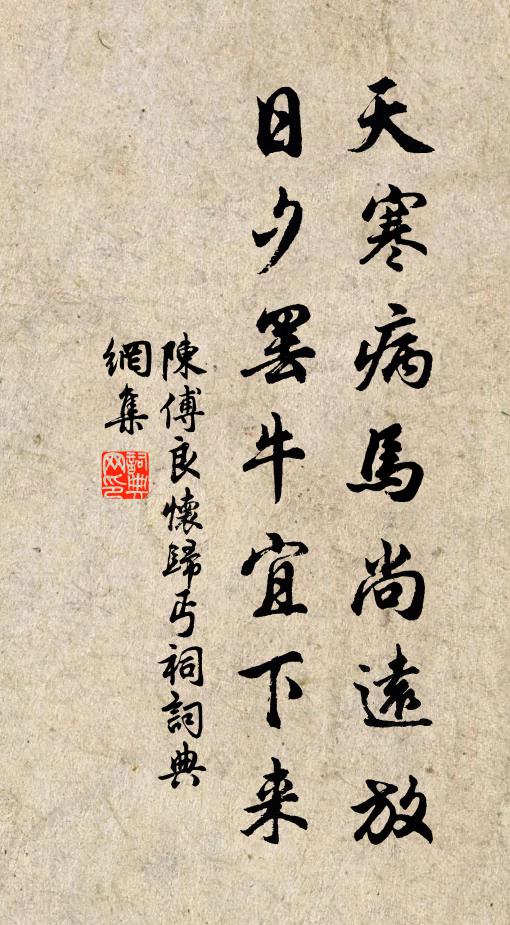 天寒病馬尚遠放
日夕罢牛宜下来
陳傅良懷歸丐祠詞典
網集
詞典網印